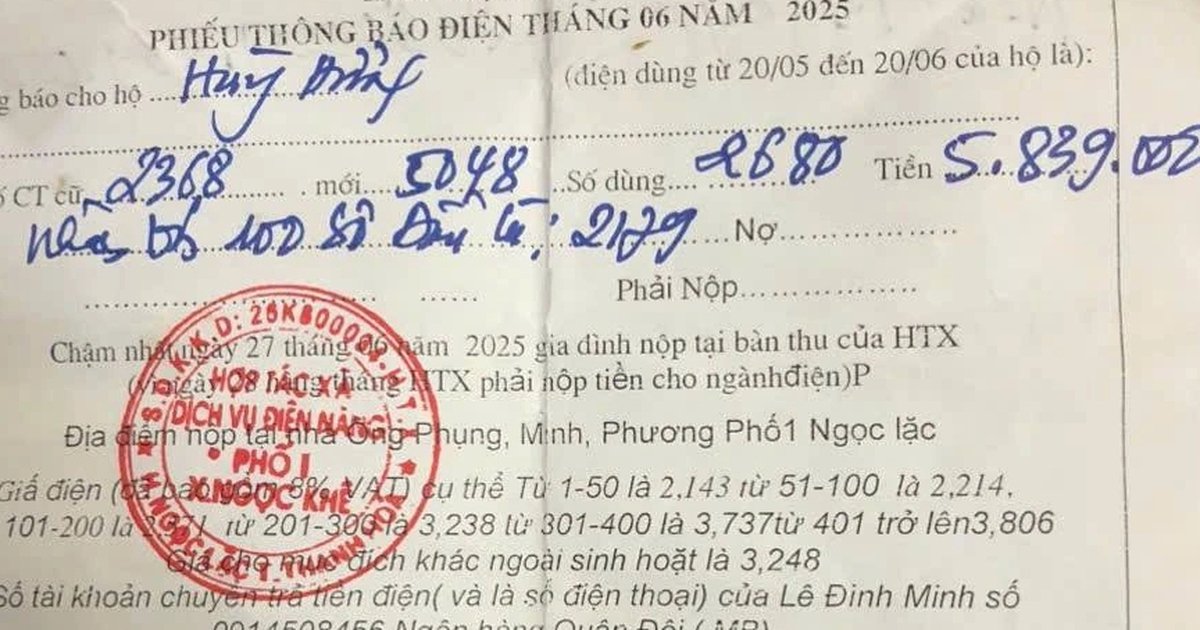 PHIẾU THÔNG BÁO ĐIỆN THÁNG 06 NĂM 2025
g báo cho hộ .... Huỳ (điện dùng từ 20/05 đến 20/06 của hộ là):
ố CT cũ 2368 ..... mới.... 5048 ..Số dùng.... 2680 Tiền 5.839.000
100 số 2179 ....Nợ..................
Phải Nộp..................
Chậm nhất ngày 27 tháng 06 năm 2025 gia đình nộp tại bàn thu của HTX
(Vì ngày 08 hằng tháng HTX phải nộp tiền cho ngànhđiện)P
Địa điểm nộp tại nhà Ông Phụng, Minh, Phương Phố1 Ngọc lặc
Giấ điện (đã bao gồm 8% VAT) cụ thể Từ 1-50 là 2,143 từ 51-100 là 2,214,
101-200 là 2,571 từ 201-300 là 3,238 từ 301-400 là 3,737từ 401 trở lên3,806
Giá cho mục đích khác ngoài sinh hoạt là 3,248
Số tài khoản chuyển trả tiền điện( và là số điện thoại) của Lê Đinh Minh số
Ngân hàng Quân Đội ( MB)
HỢP TÁC XÃ
DỊCH VỤ ĐIỆN NĂNG
PHỐ I
X.NGỌC KHÊ